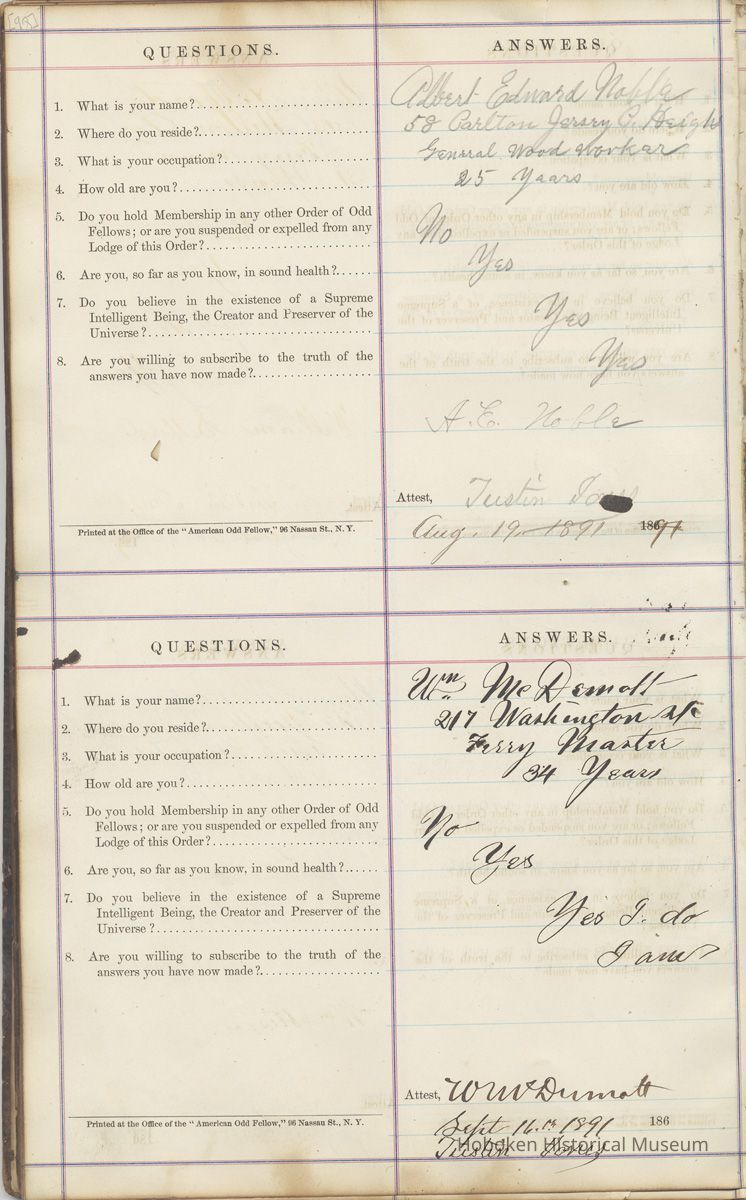 [98]
QUESTIONS.
ANSWERS.
1. What is your name?
Albert Edward Noble
2. Where do you reside?
58 Carlton Jersey C. Heights
3. What is your occupation?
General Wood Worker
4. How old are you?
25 Years
5. Do you hold Membership in any other Order of Odd
Fellows; or are you suspended or expelled from any
Lodge of this Order?
No
6. Are you, so far as you know, in sound health?
Yes
7. Do you believe in the existence of a Supreme
Intelligent Being, the Creator and Preserver of the
Universe?
Yes
8. Are you willing to subscribe to the truth of the
answers you have now made?
Yes
A. E. Noble
Attest,
Aug. 19. 1891 186
Printed at the Office of the "American Odd Fellow," 96 Nassau St., N. Y.
QUESTIONS.
ANSWERS.
1. What is your name?
Wm McDemott
2. Where do you reside?
217 Washington St
3. What is your occupation?
Ferry Master
4. How old are you?
34 Years
5. Do you hold Membership in any other Order of Odd
Fellows; or are you suspended or expelled from any
Lodge of this Order?
No
6. Are you, so far as you know, in sound health?
Yes
7. Do you believe in the existence of a Supreme
Intelligent Being, the Creator and Preserver of the
Universe?
Yes I do
8. Are you willing to subscribe to the truth of the
answers you have now made?
I am
Attest, Wm McDemott
Sept 16.th 1891 186
Printed at the Office of the "American Odd Fellow," 96 Nassau St., N. Y.
Hoboken Historical Museum